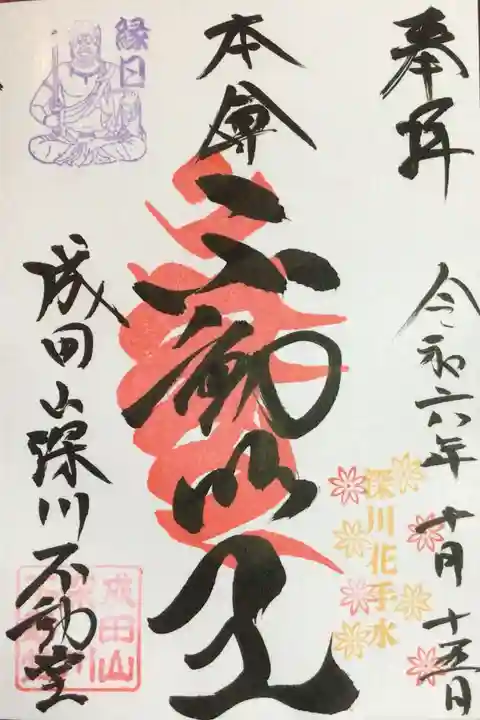 奉拝
令和六年十月十五日
深川花手水
本尊
不動明王
縁日
成田山深川不動堂
成田山